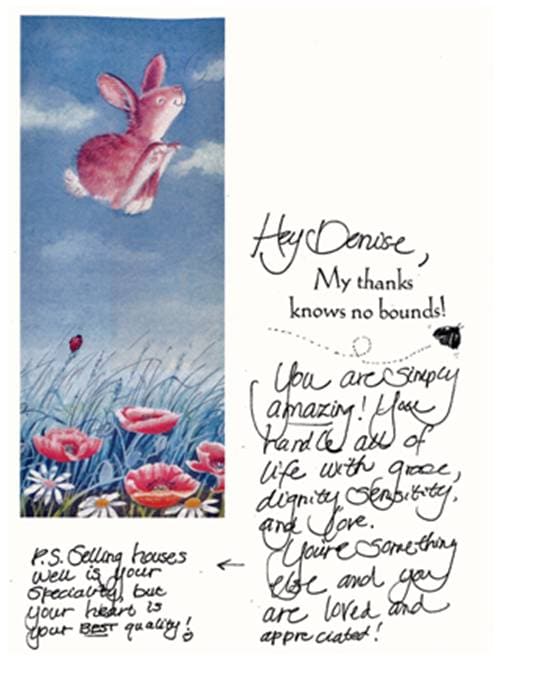 Hey Denise,
My thanks
knows no bounds!
You are simply
amazing! You
handle all of
life with grace,
dignity, sensitivity,
and love.
You're something
else and you
are loved and
appreciated!
P.S. Selling houses
well is your
specialty, but
your heart is
your BEST quality!